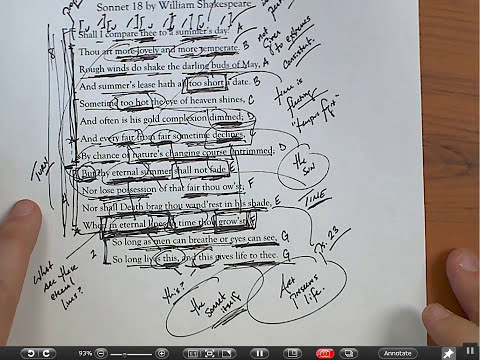 Sonnet 18 by William Shakespeare
Shall I compare thee to a summer's day? A
Thou art more lovely and more temperate. B
not given to extremes
consistent.
Rough winds do shake the darling buds of May, A
And summer's lease hath all too short a date. B
Sometime too hot the eye of heaven shines, C
time is fleeting
"tempus fugit"
And often is his gold complexion dimmed; D
And every fair from fair sometime declines, C
By chance or nature's changing course untrimmed: D
the sun
But thy eternal summer shall not fade, E
Turn
Nor lose possession of that fair thou ow'st; F
Nor shall Death brag thou wand'rest in his shade, E
TIME
When in eternal lines to time thou grow'st, F
So long as men can breathe or eyes can see, G
So long lives this, and this gives life to thee. G
What are these eternal lines?
2
this?
the sonnet itself
Art preserves life.
93%
Annotate